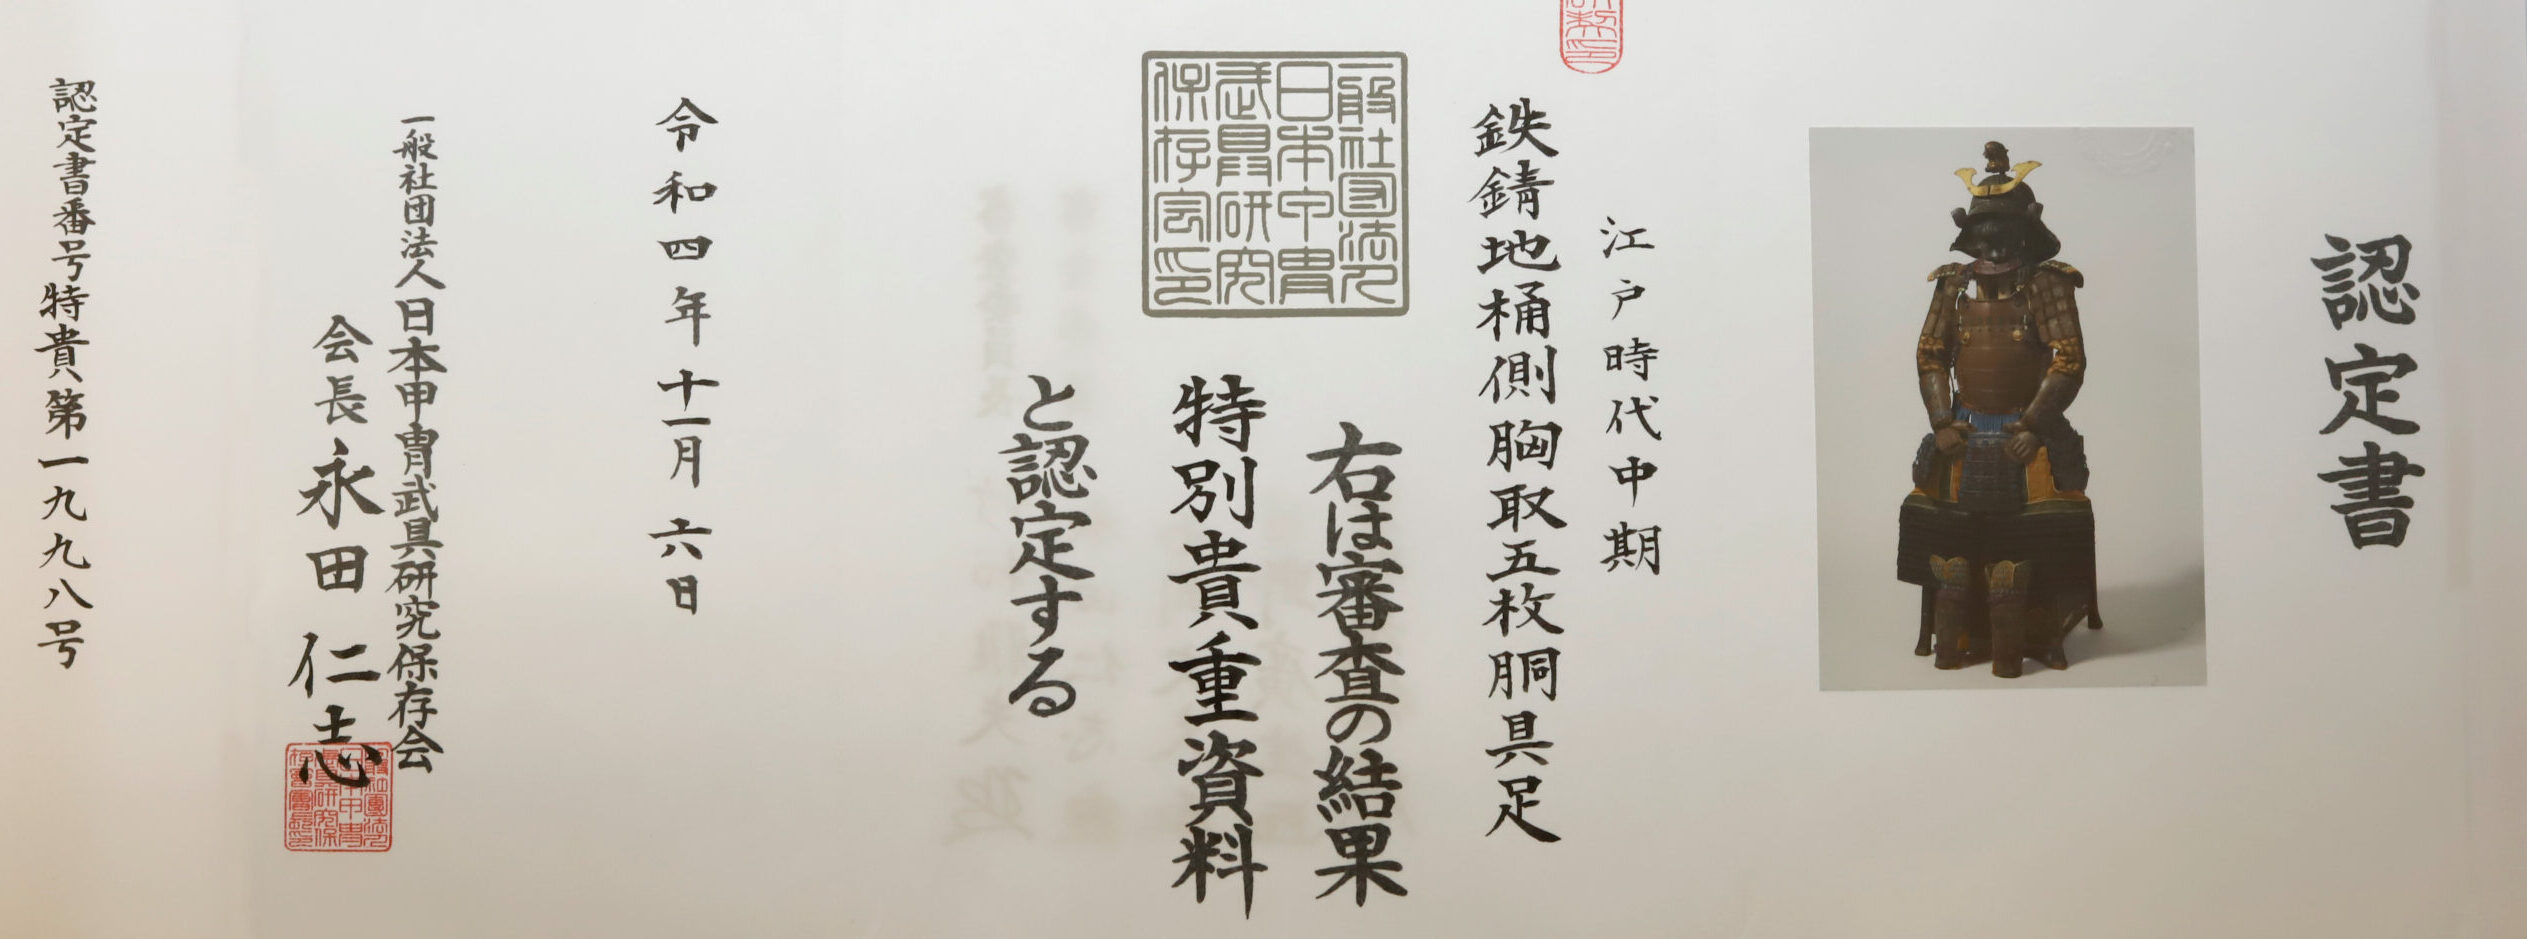 認定書
江戸時代中期
鉄錆地桶側胸取五枚胴具足
右は審査の結果
特別貴重資料
と認定する
一般社団法人
日本甲冑
武具研究
保存会印
令和四年十一月六日
一般社団法人日本甲冑武具研究保存会
会長永田仁志
認定書番号特貴第一九九八号